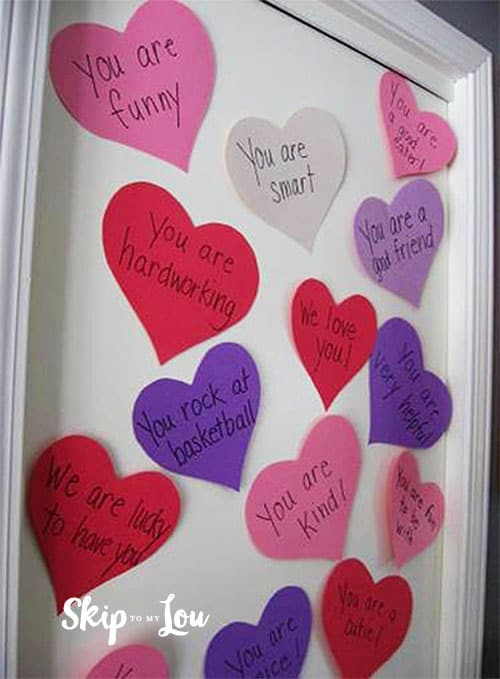 You are
funny
You are
a good
eater!
You are
smart
You are a
good friend
You are
hardworking
We love
you!
You are
very helpful
You rock at
basketball
We are lucky
to have you
You are
kind!
You are
fun
to be
with
You are
nice!
You are a
cutie!
Skip TO MY Lou